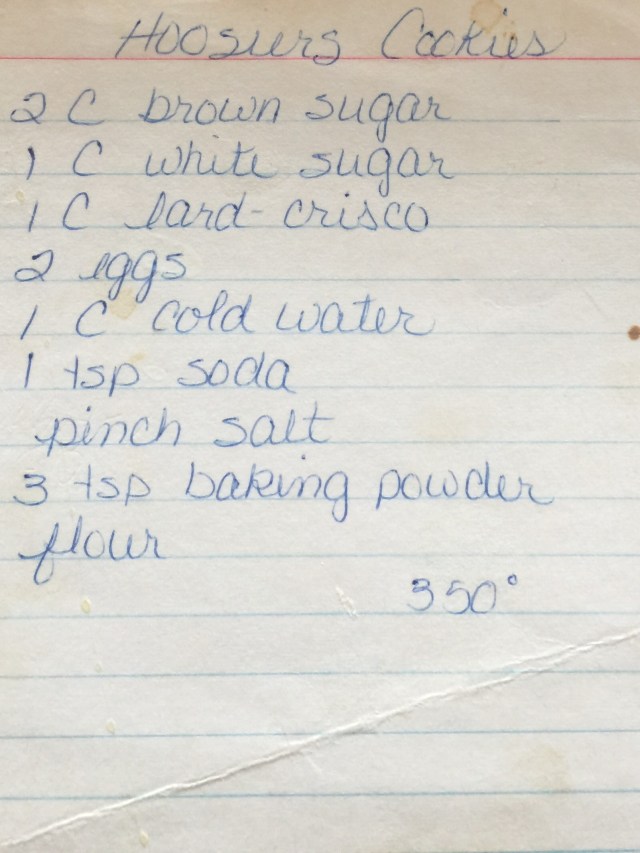 Hoosiers Cookies
2 C brown sugar
1 C white sugar
1 C lard-crisco
2 eggs
1 C cold water
1 tsp soda
pinch salt
3 tsp baking powder
flour
350°